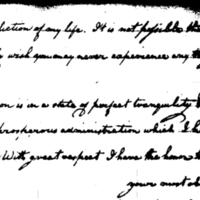 diction of my life. It is not possible th
wish you may never experience any
on is in a state of perfect tranquility
prosperous administration which I h
With great respect I have the honor t
your most ob